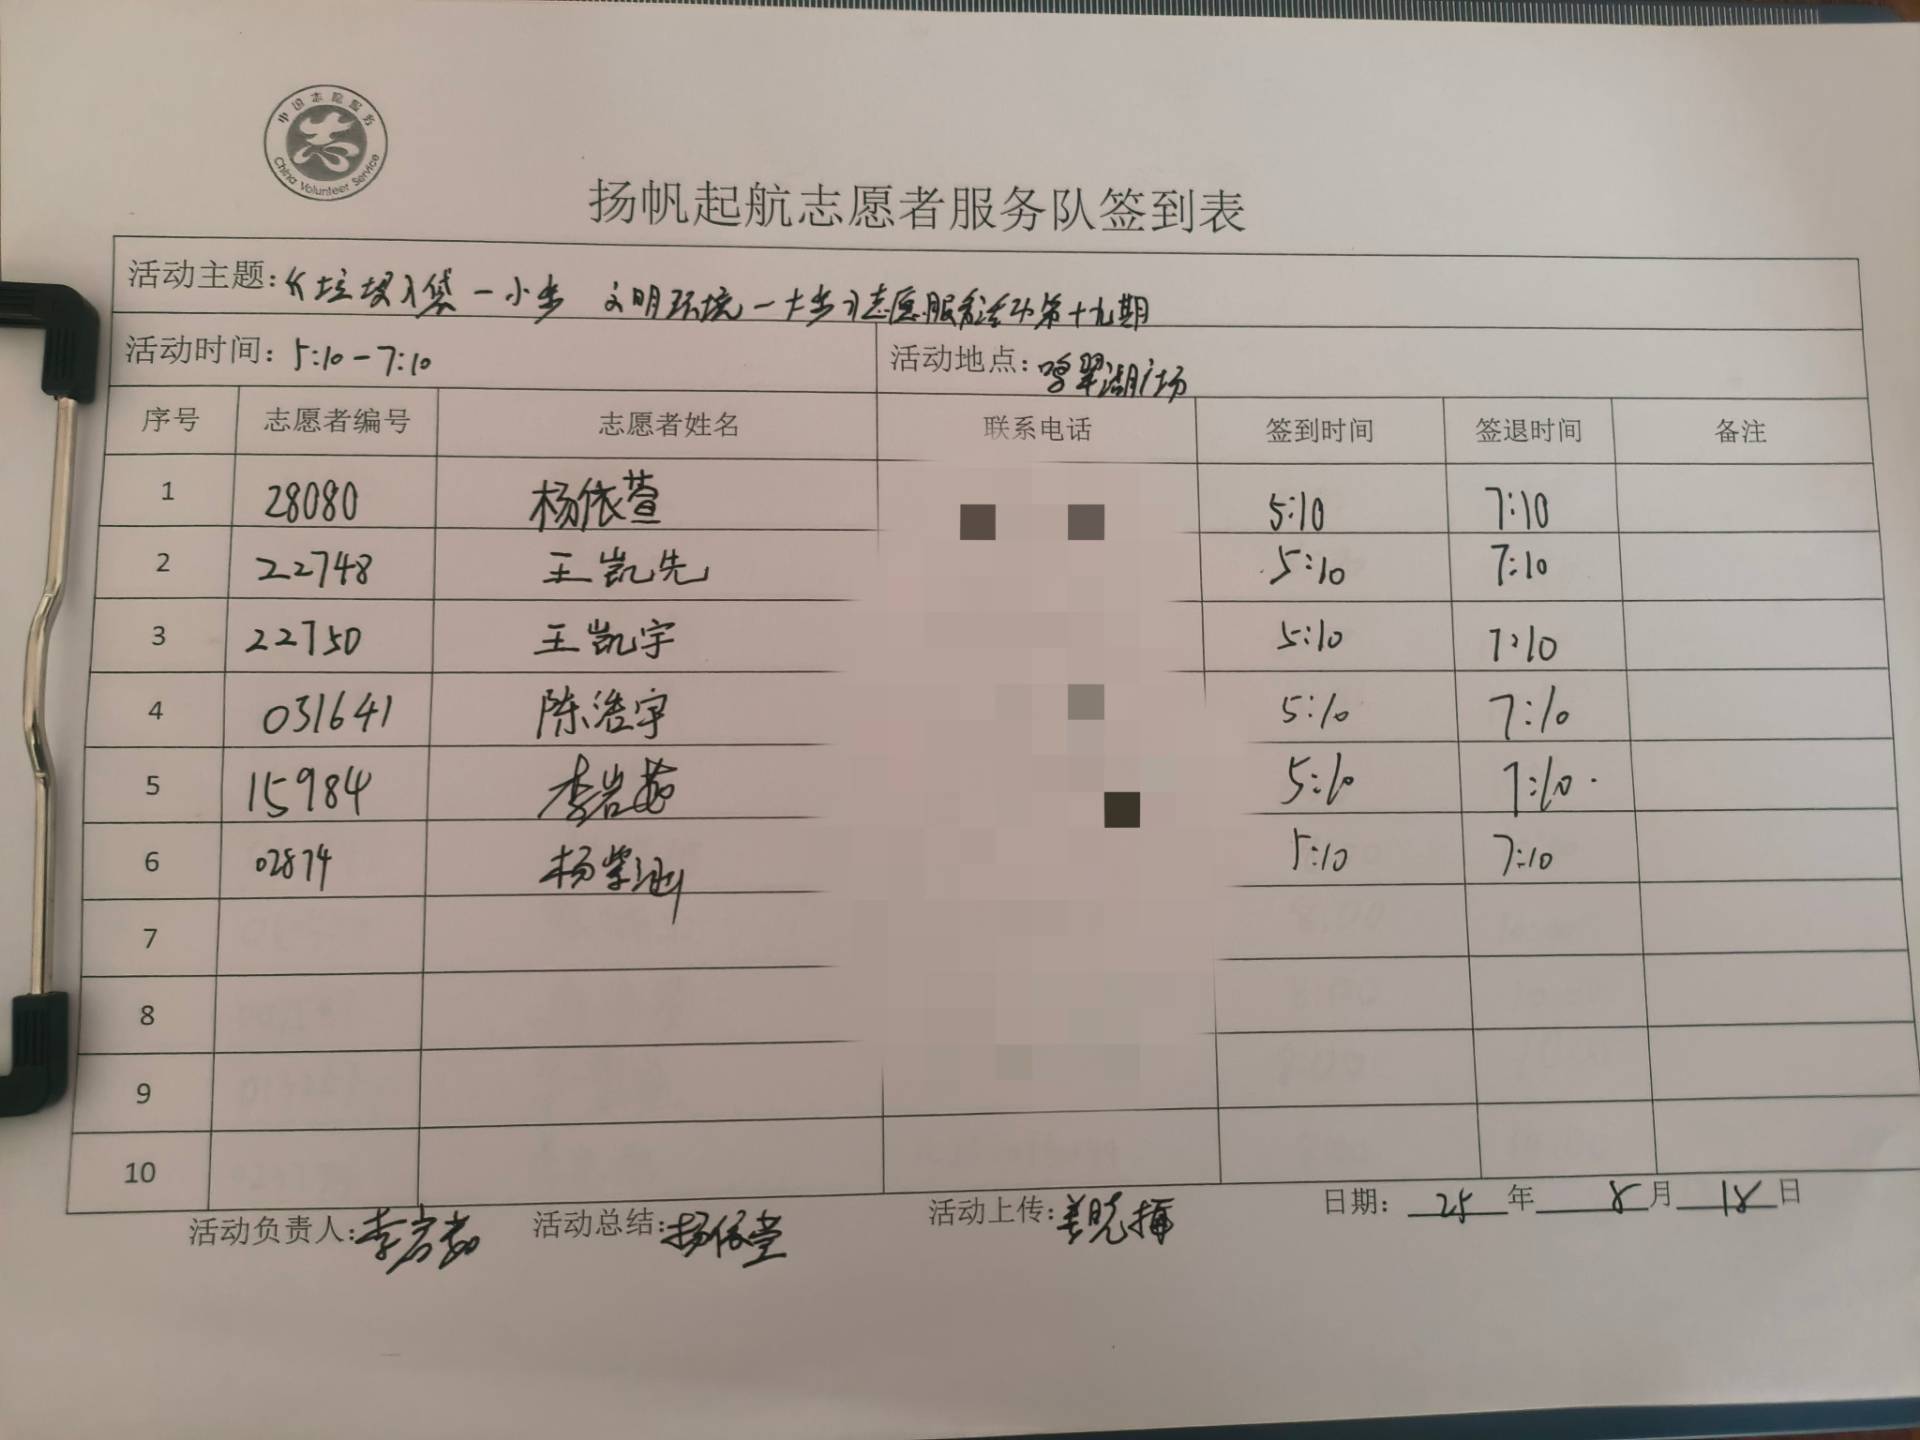 中国志愿服务
China Volunteer Service
扬帆起航志愿者服务队签到表
活动主题:《垃圾入袋一小步 文明环境一大步》志愿服务活动第十九期
活动时间: 5:10-7:10 活动地点: 鸣翠湖广场
序号 志愿者编号 志愿者姓名 联系电话 签到时间 签退时间 备注
1 28080 杨依萱 5:10 7:10
2 22748 王凯先 5:10 7:10
3 22750 王凯宇 5:10 7:10
4 031641 陈浩宇 5:10 7:10
5 15984 李岩茹 5:10 7:10
6 02874 杨紫涵 5:10 7:10
7
8
9
10
活动负责人:李岩茹 活动总结:杨依萱 活动上传:姜晓 日期: 25 年 8 月 18 日